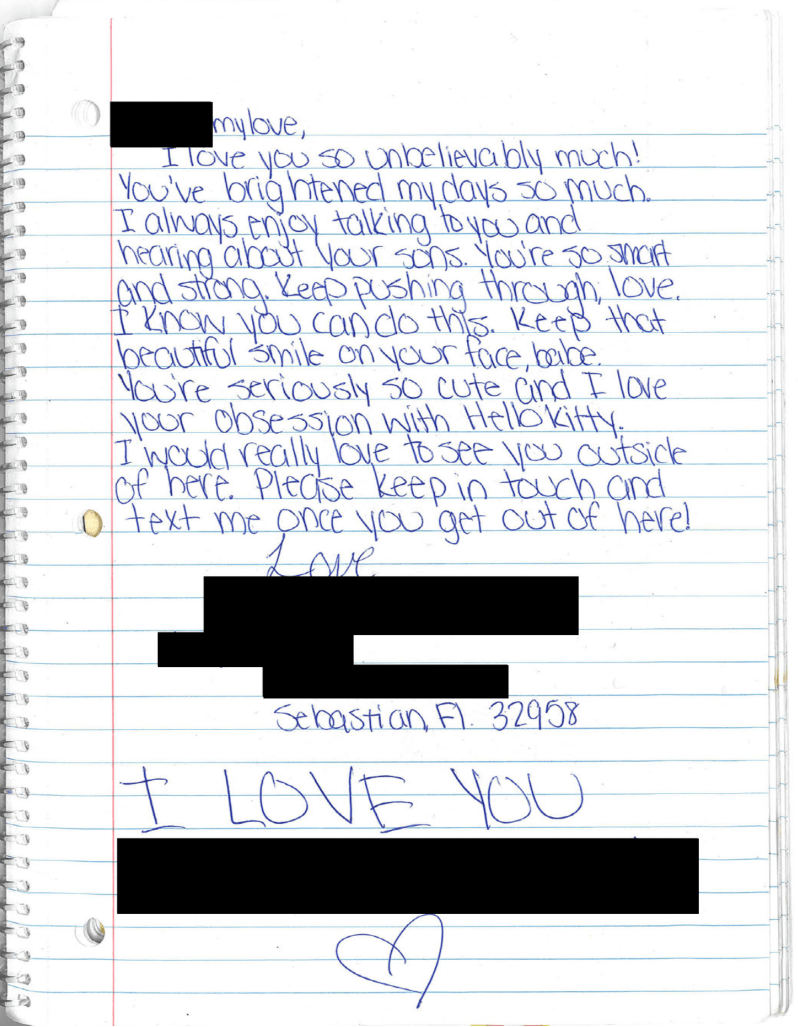 my love,
I love you so unbelievably much!
You've brightened my days so much.
I always enjoy talking to you and
hearing about your sons. You're so smart
and strong. Keep pushing through, love.
I know you can do this. Keep that
beautiful smile on your face, babe.
You're seriously so cute and I love
your obsession with Hello Kitty.
I would really love to see you outside
of here. Please keep in touch and
text me once you get out of here!
Love
Sebastian, Fl. 32958
I LOVE YOU